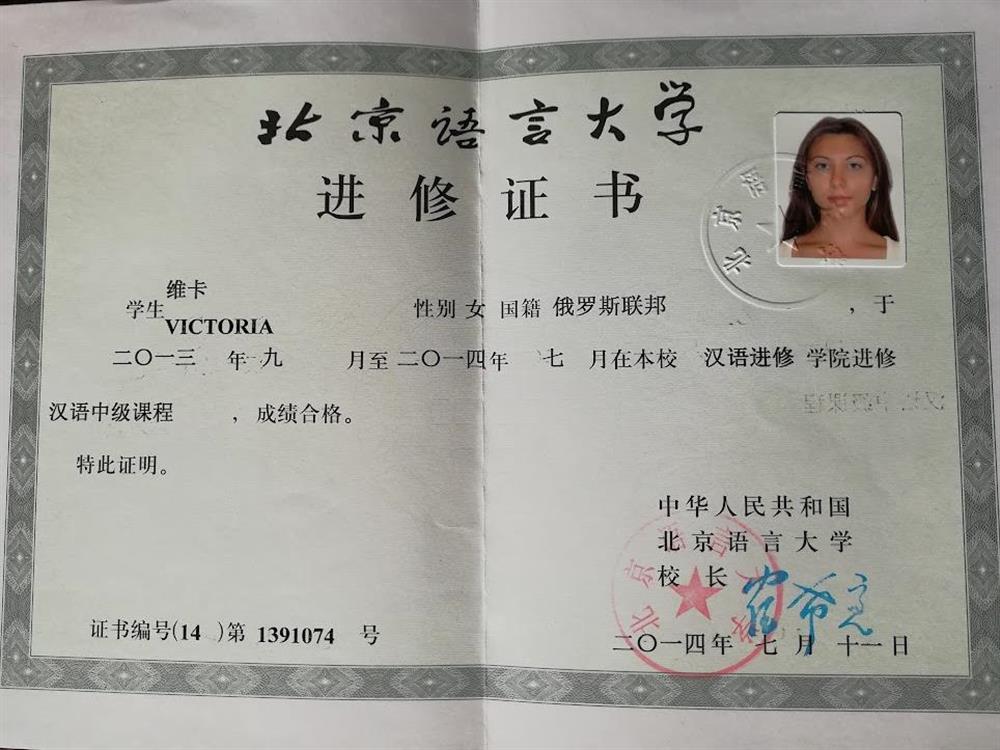 北京语言大学
进修证书
学生 维卡 VICTORIA 性别 女 国籍 俄罗斯联邦 ，于
二〇一三 年 九 月至 二〇一四年 七 月在本校 汉语进修 学院进修
汉语中级课程 ，成绩合格。
特此证明。
中华人民共和国
北京语言大学
校长 崔希亮
二〇一四年 七 月 十一 日
证书编号(14 )第 1391074 号